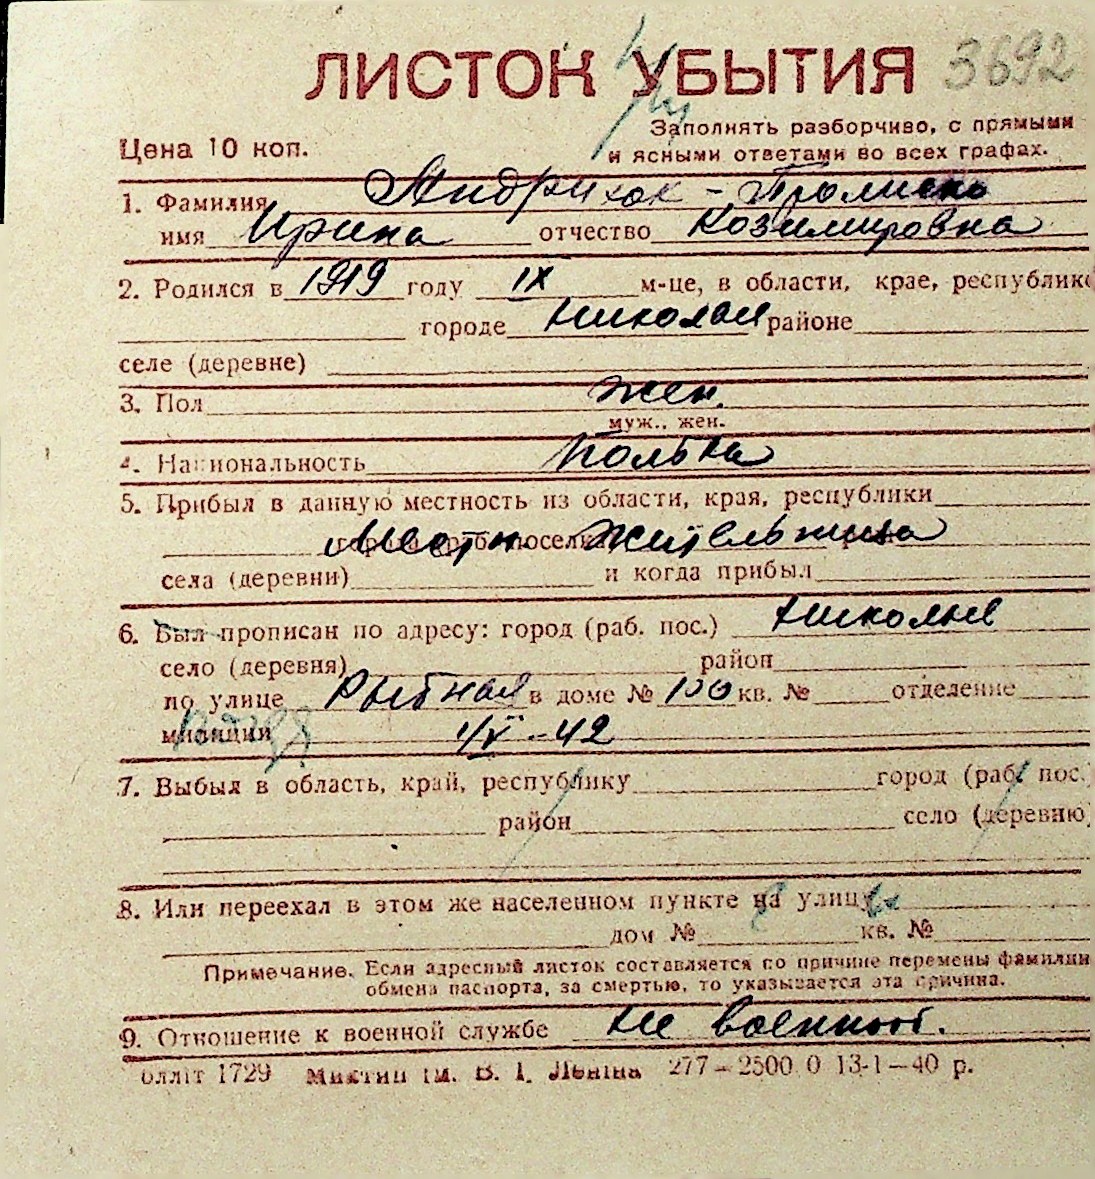 ЛИСТОК УБЫТИЯ 3692
Заполнять разборчиво, с прямыми
Цена 10 коп. и ясными ответами во всех графах.
1. Фамилия Андрихок-
имя Ирина отчество Козимировна
2. Родился в 1919 году IX м-це, в области, крае, республике
городе Николаев районе
селе (деревне)
3. Пол жен.
муж., жен.
4. Национальность полька
5. Прибыл в данную местность из области, края, республики
Местн. жительница
села (деревни) и когда прибыл
6. Был прописан по адресу: город (раб. пос.) Николаев
село (деревня) район
по улице Рыбная в доме № 100 кв. № отделение
милиции 1/V-42
7. Выбыл в область, край, республику город (раб. пос.)
район село (деревню)
8. Или переехал в этом же населенном пункте на улицу
дом № кв. №
Примечание. Если адресный листок составляется по причине перемены фамилии
обмена паспорта, за смертью, то указывается эта причина.
9. Отношение к военной службе не военнооб.
Облліт 1729 ім. В. І. Леніна 277—2500 0 13-1—40 р.